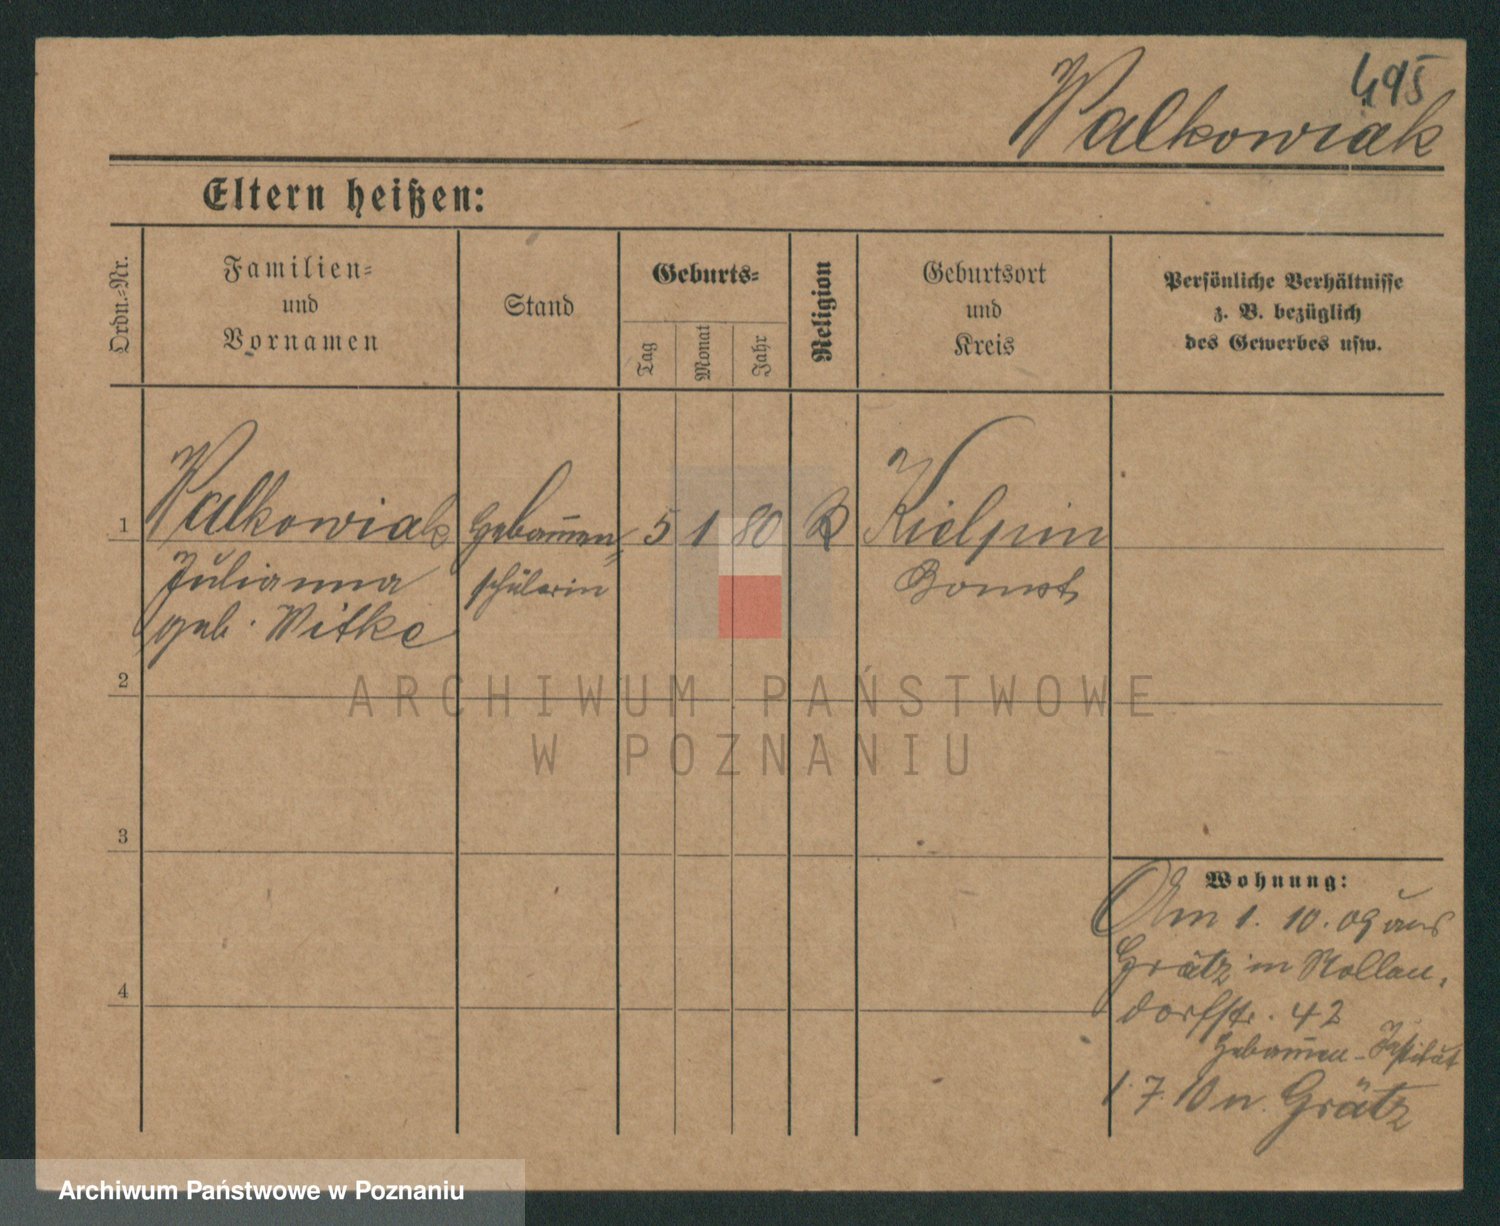 495
Walkowiak
Eltern heißen:
Ordn.-Nr.
Familien-
und
Vornamen
Stand
Geburts-
Tag
Monat
Jahr
Religion
Geburtsort
und
Kreis
Persönliche Verhältnisse
z. B. bezüglich
des Gewerbes usw.
1
Walkowiak
Julianna
geb. Witke
Hebam̅en-
schülerin
5 1 80
Kielpin
Bomst
2
3
4
Wohnung:
Am 1. 10. 09 aus
Grätz in Nollen-
dorfstr. 42
Hebam̅en-Institut
1. 7. 10 n. Grätz
ARCHIWUM PAŃSTWOWE
W POZNANIU
Archiwum Państwowe w Poznaniu